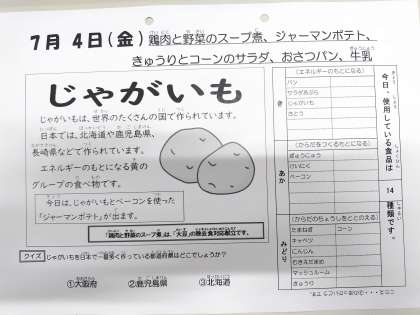 7月 4日(金) 鶏肉と野菜のスープ煮、ジャーマンポテト、
きゅうりとコーンのサラダ、おさつパン、牛乳
じゃがいも
じゃがいもは、世界のたくさんの国で作られています。
日本では、北海道や鹿児島県、
長崎県などで作られています。
エネルギーのもとになる黄の
グループの食べ物です。
今日は、じゃがいもとベーコンを使った
「ジャーマンポテト」が出ます。
「鶏肉と野菜のスープ煮」は、「大豆」の除去食対応献立です。
クイズ じゃがいもを日本で一番多く作っている都道府県はどこでしょうか?
①大阪府 ②鹿児島県 ③北海道
今日、使用している食品は
14
種類です。
き
(エネルギーのもとになる)
パン
サラダあぶら
じゃがいも
さとう
あか
(からだをつくるもとになる)
ぎゅうにゅう
けいにく
ベーコン
みどり
(からだのちょうしをととのえる)
たまねぎ コーン
キャベツ
にんじん
むきえだまめ
マッシュルーム
きゅうり